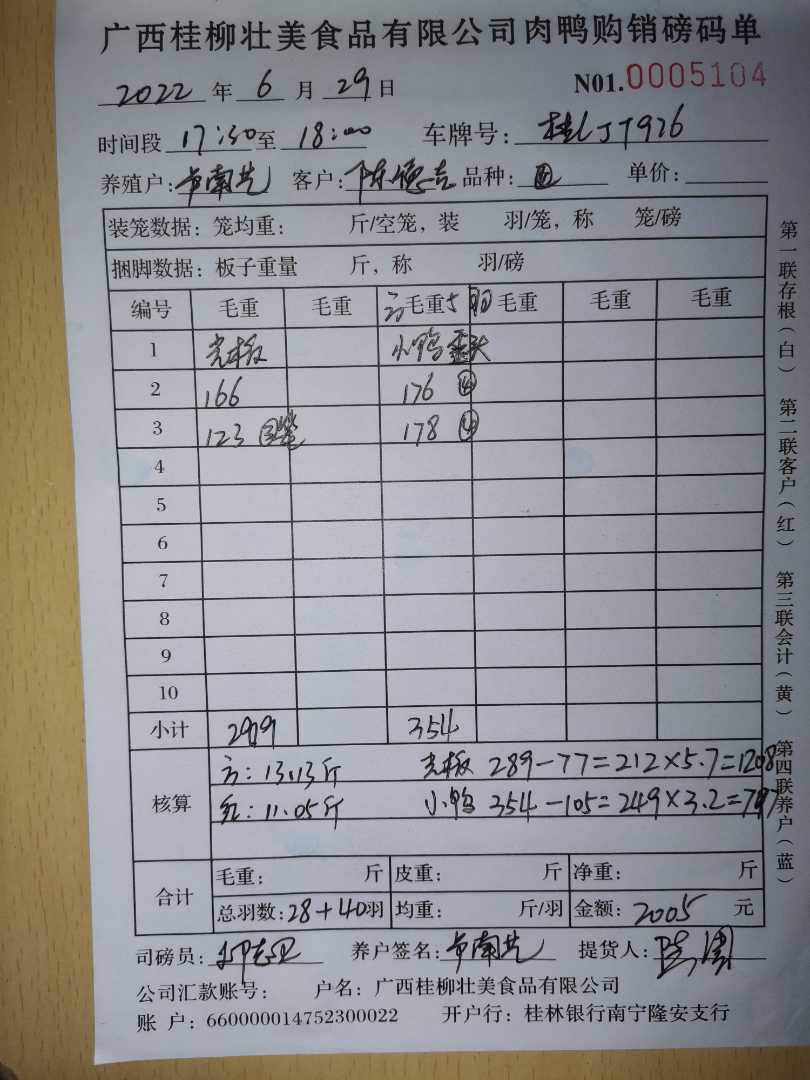 广西桂柳壮美食品有限公司肉鸭购销磅码单
2022 年 6 月 29 日 N01.0005104
时间段 17:30 至 18:00 车牌号: 桂LJT926
养殖户: 韦南先 客户: 陈德吉 品种: 单价:
装笼数据: 笼均重: 斤/空笼, 装 羽/笼, 称 笼/磅
捆脚数据: 板子重量 斤, 称 羽/磅
编号 毛重 毛重 毛重 毛重 毛重 毛重
1 光板 小鸭
2 166 176 ④
3 123 178 ④
4
5
6
7
8
9
10
小计 289 354
核算
方: 13.13斤 光板 289-77=212×5.7=1208
红: 11.05斤 小鸭 354-105=249×3.2=797
合计
毛重: 斤 皮重: 斤 净重: 斤
总羽数: 28+40 羽 均重: 斤/羽 金额: 2005 元
司磅员: 养户签名: 韦南先 提货人:
公司汇款账号: 户名: 广西桂柳壮美食品有限公司
账 户: 660000014752300022 开户行: 桂林银行南宁隆安支行
第一联存根(白) 第二联客户(红) 第三联会计(黄) 第四联养户(蓝)